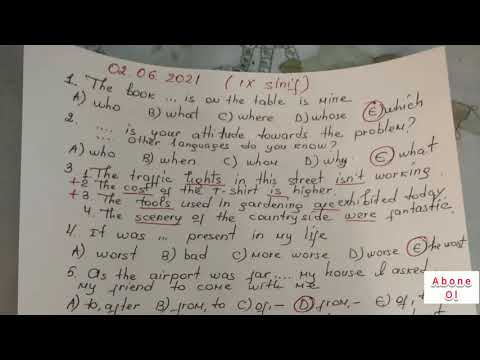 02.06.2021 (IX sinif)
1. The book ... is on the table is mine
A) who B) what C) where D) whose E) which
2. .... is your attitude towards the problem?
.... other languages do you know?
A) who B) when C) whom D) why E) what
3 1 The traffic lights in this street isn't working
+2 The cost of the T-shirt is higher
+3. The tools used in gardening are exhibited today
4. The scenery of the countryside were fantastic
4. It was ... present in my life
A) worst B) bad C) more worse D) worse E) the worst
5. As the airport was far .... my house I asked
my friend to come with me
A) to, after B) from, to C) of, - D) from, - E) of,
Abone
Ol